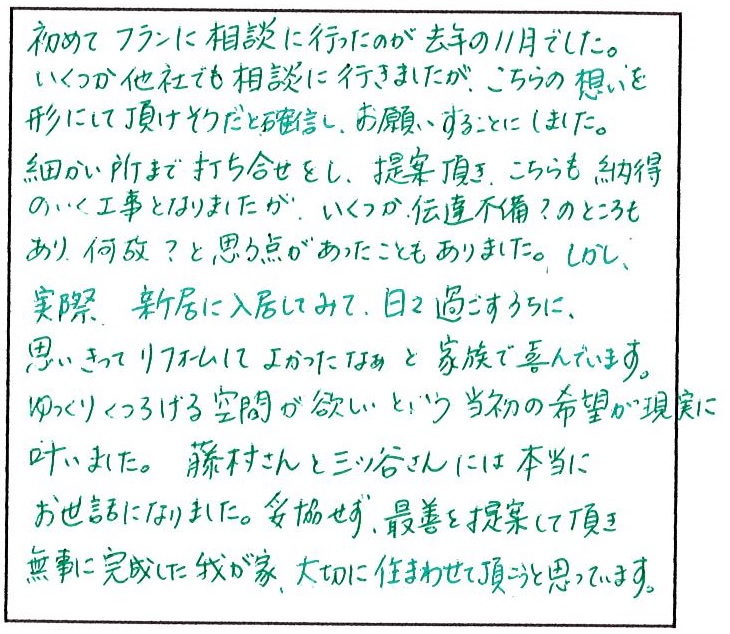 初めて フランに 相談に行ったのが 去年の11月でした。
いくつか他社でも相談に行きましたが、こちらの想いを
形にして頂けそうだと確信し、お願いすることにしました。
細かい所まで打ち合せをし、提案頂き、こちらも納得
のいく工事となりましたが、いくつか伝達不備?のところも
あり、何故?と思う点があったこともありました。しかし、
実際、新居に入居してみて、日々過ごすうちに、
思いきってリフォームしてよかったなぁと家族で喜んでいます。
ゆっくりくつろげる空間が欲しいという当初の希望が現実に
叶いました。 藤村さんと三ツ谷さんには本当に
お世話になりました。妥協せず、最善を提案して頂き
無事に完成した我が家、大切に住まわせて頂こうと思っています。